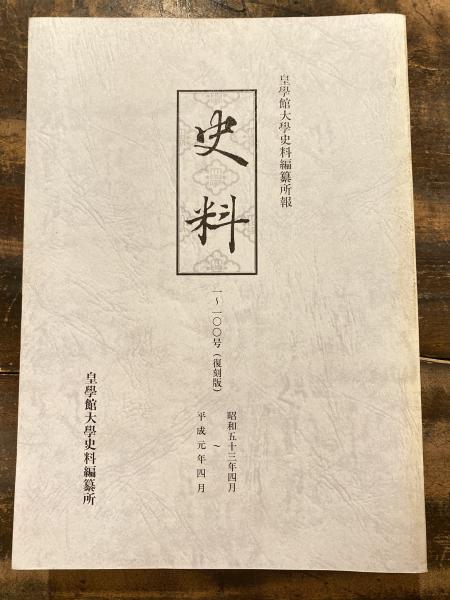 皇學館大學史料編纂所報
史料
一～一〇〇号（復刻版）
昭和五十三年四月
～
平成元年四月
皇學館大學史料編纂所